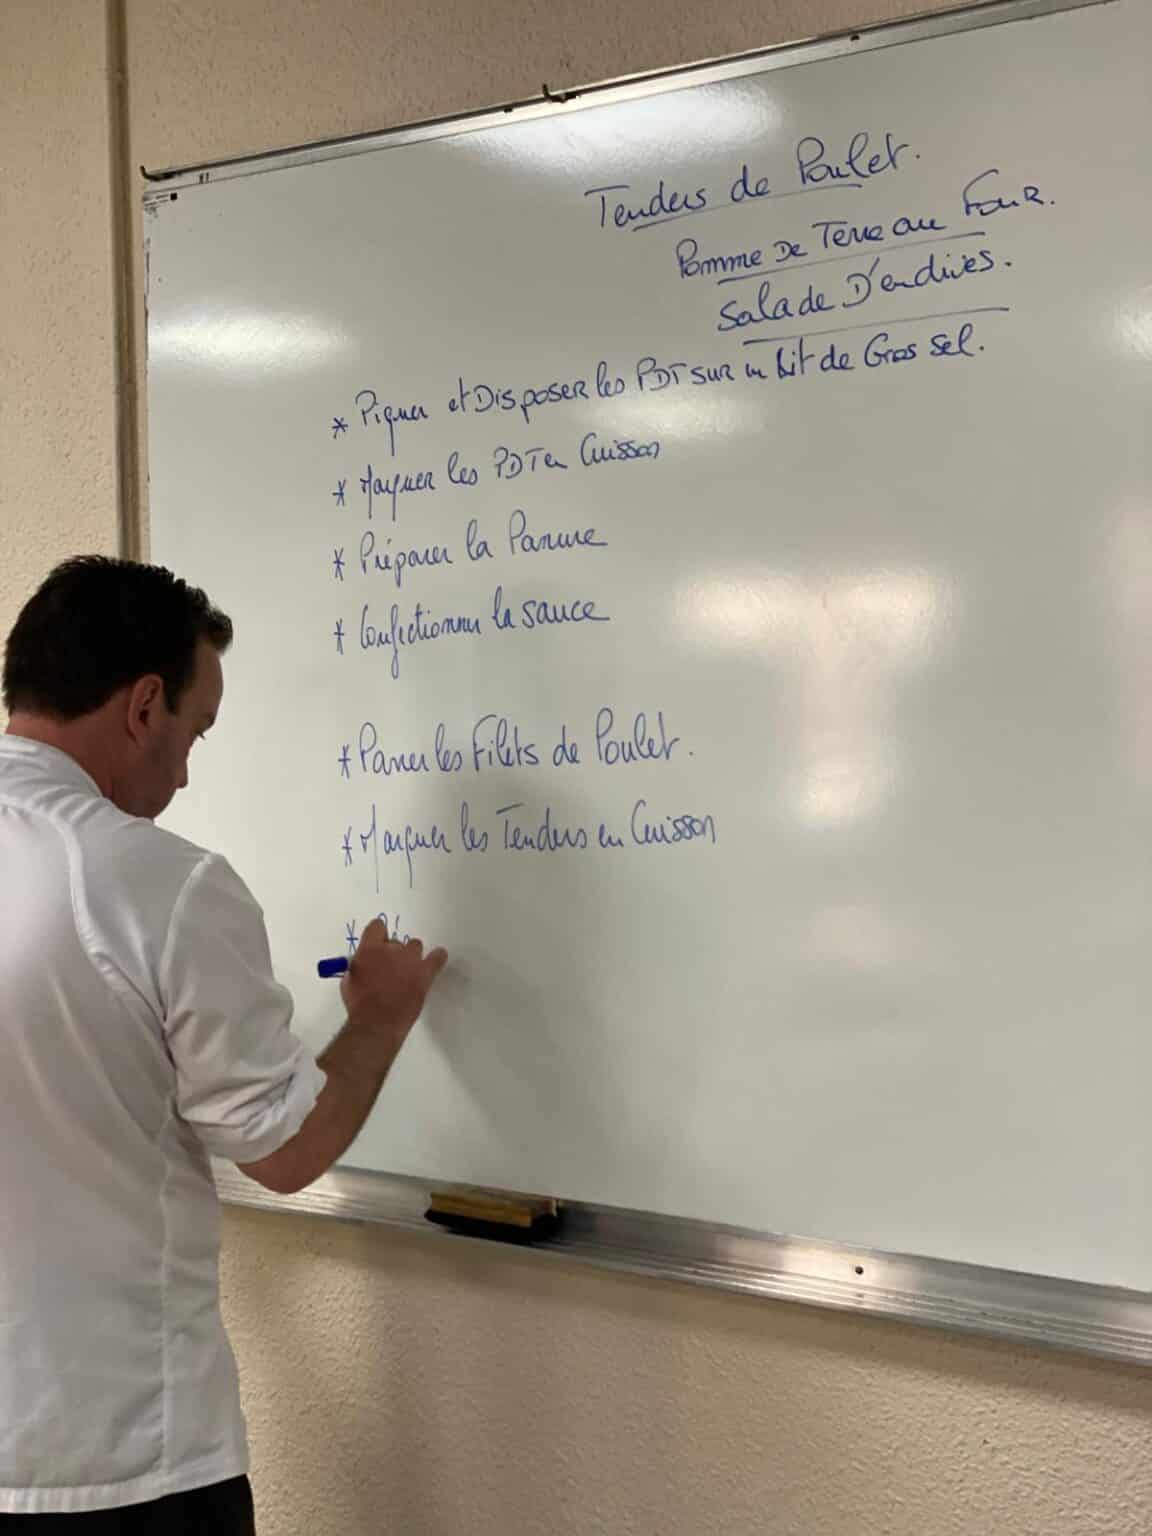 Tenders de Poulet.
Pomme De Terre au Four.
Salade D'endives.
* Piquer et Disposer les PDT sur un Lit de Gros Sel.
* Marquer les PDT en Cuisson
* Préparer la Panure
* Confectionner la sauce
* Paner les Filets de Poulet.
* Marquer les Tenders en Cuisson
*